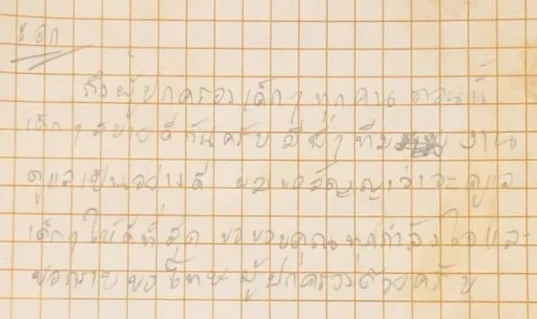 โค้ช เอก
ถึงผู้ปกครองเด็กๆ ทุกคน ตอนนี้
เด็กๆ สบายดีกันครับ มีพี่ๆ ทีม งาน
ดูแลเป็นอย่างดี ผมขอสัญญาว่าจะดูแล
เด็กๆ ให้ดีที่สุด ขอขอบคุณทุกกำลังใจและ
ขอกราบขอโทษผู้ปกครองด้วยครับ